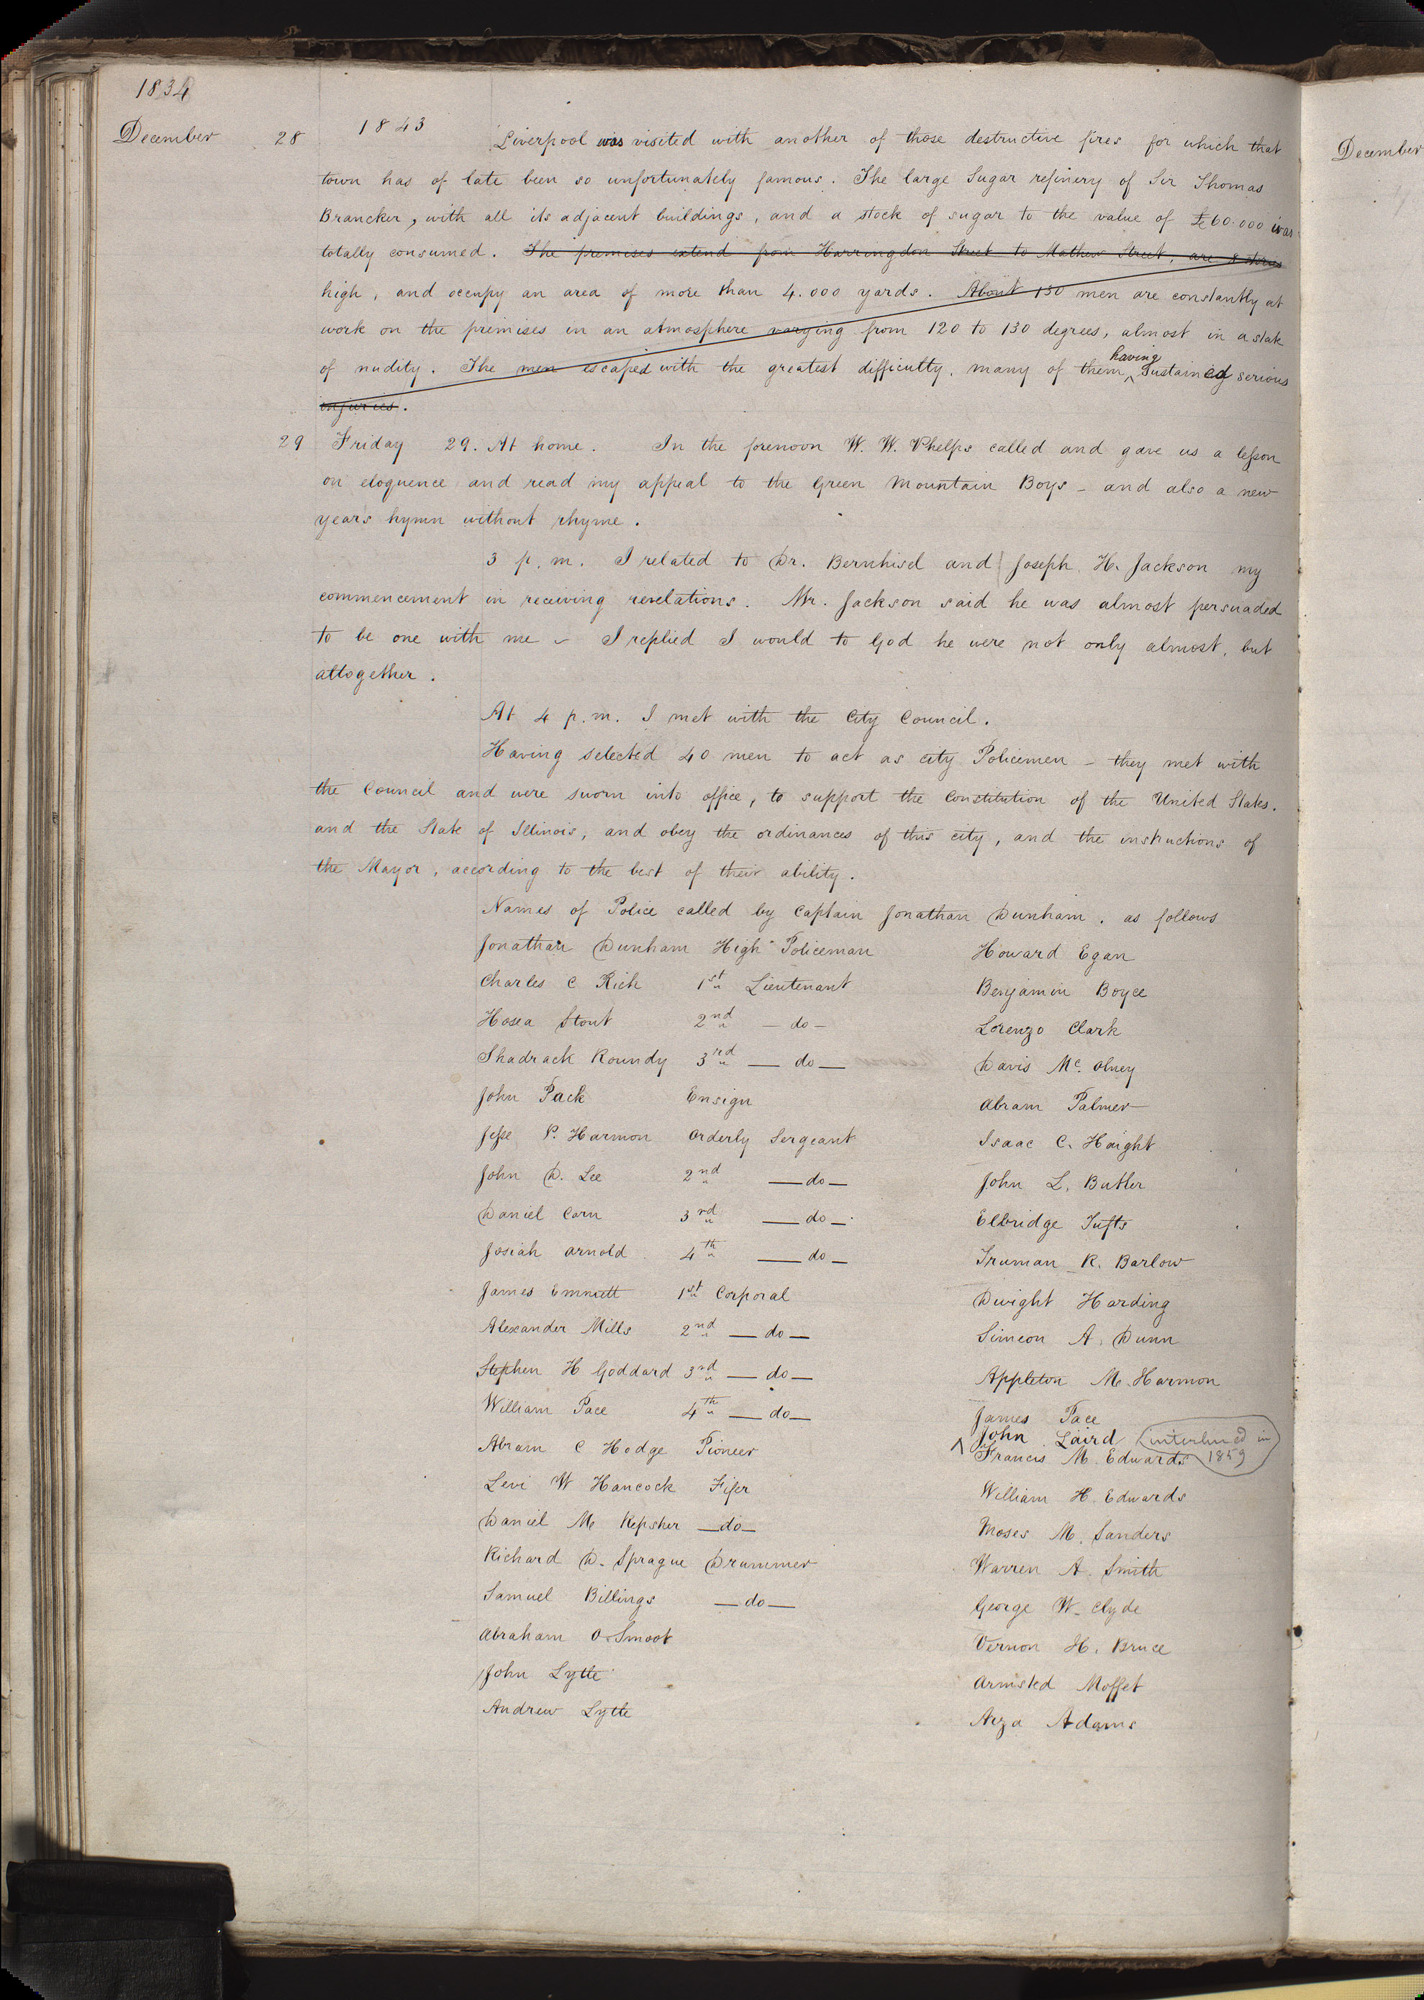 1834
December 28 1843 Liverpool was visited with another of those destructive fires for which that
town has of late been so unfortunately famous. The large Sugar refinery of Sir Thomas
Brancker, with all its adjacent buildings, and a stock of sugar to the value of £60.000 was
totally consumed. The premises extend from Harringdon Street to Mathew Street, are 8 stories
high, and occupy an area of more than 4.000 yards. About 150 men are constantly at
work on the premises in an atmosphere varying from 120 to 130 degrees, almost in a state
of nudity. The men escaped with the greatest difficulty, many of them ^ having sustained serious
injuries.
29 Friday 29. At home. In the forenoon W. W. Phelps called and gave us a lesson
on eloquence and read my appeal to the Green Mountain Boys – and also a new
year's hymn without rhyme.
3 p.m. I related to Dr. Bernhisel and Joseph H. Jackson my
commencement in receiving revelations. Mr. Jackson said he was almost persuaded
to be one with me – I replied I would to God he were not only almost, but
altogether.
At 4 p.m. I met with the City Council.
Having selected 40 men to act as city Policemen – they met with
the Council and were sworn into office, to support the Constitution of the United States.
and the State of Illinois, and obey the ordinances of this city, and the instructions of
the Mayor, according to the best of their ability.
Names of Police called by Captain Jonathan Dunham. as follows
Jonathan Dunham High Policeman
Charles C Rich 1st Lieutenant
Hosea Stout 2nd – do –
Shadrack Roundy 3rd — do —
John Pack Ensign
Jesse P. Harmon Orderly Sergeant
John D. Lee 2nd — do —
Daniel Carn 3rd — do —
Josiah Arnold 4th — do —
James Emmett 1st Corporal
Alexander Mills 2nd — do —
Stephen H Goddard 3rd — do —
William Pace 4th — do —
Abram C Hodge Pioneer
Levi W Hancock Fifer
Daniel M Repsher — do —
Richard D. Sprague Drummer
Samuel Billings — do —
Abraham O. Smoot
John Lytle
Andrew Lytle
Howard Egan
Benjamin Boyce
Lorenzo Clark
Davis Mc. Olney
Abram Palmer
Isaac C. Haight
John L. Butler
Elbridge Tufts
Truman R. Barlow
Dwight Harding
Simeon A. Dunn
Appleton M. Harmon
James Pace
^ John Laird (interlined in
Francis M. Edwards 1859
William H. Edwards
Moses M. Sanders
Warren A. Smith
George W. Clyde
Vernon H. Bruce
Armsted Moffet
Arza Adams
December